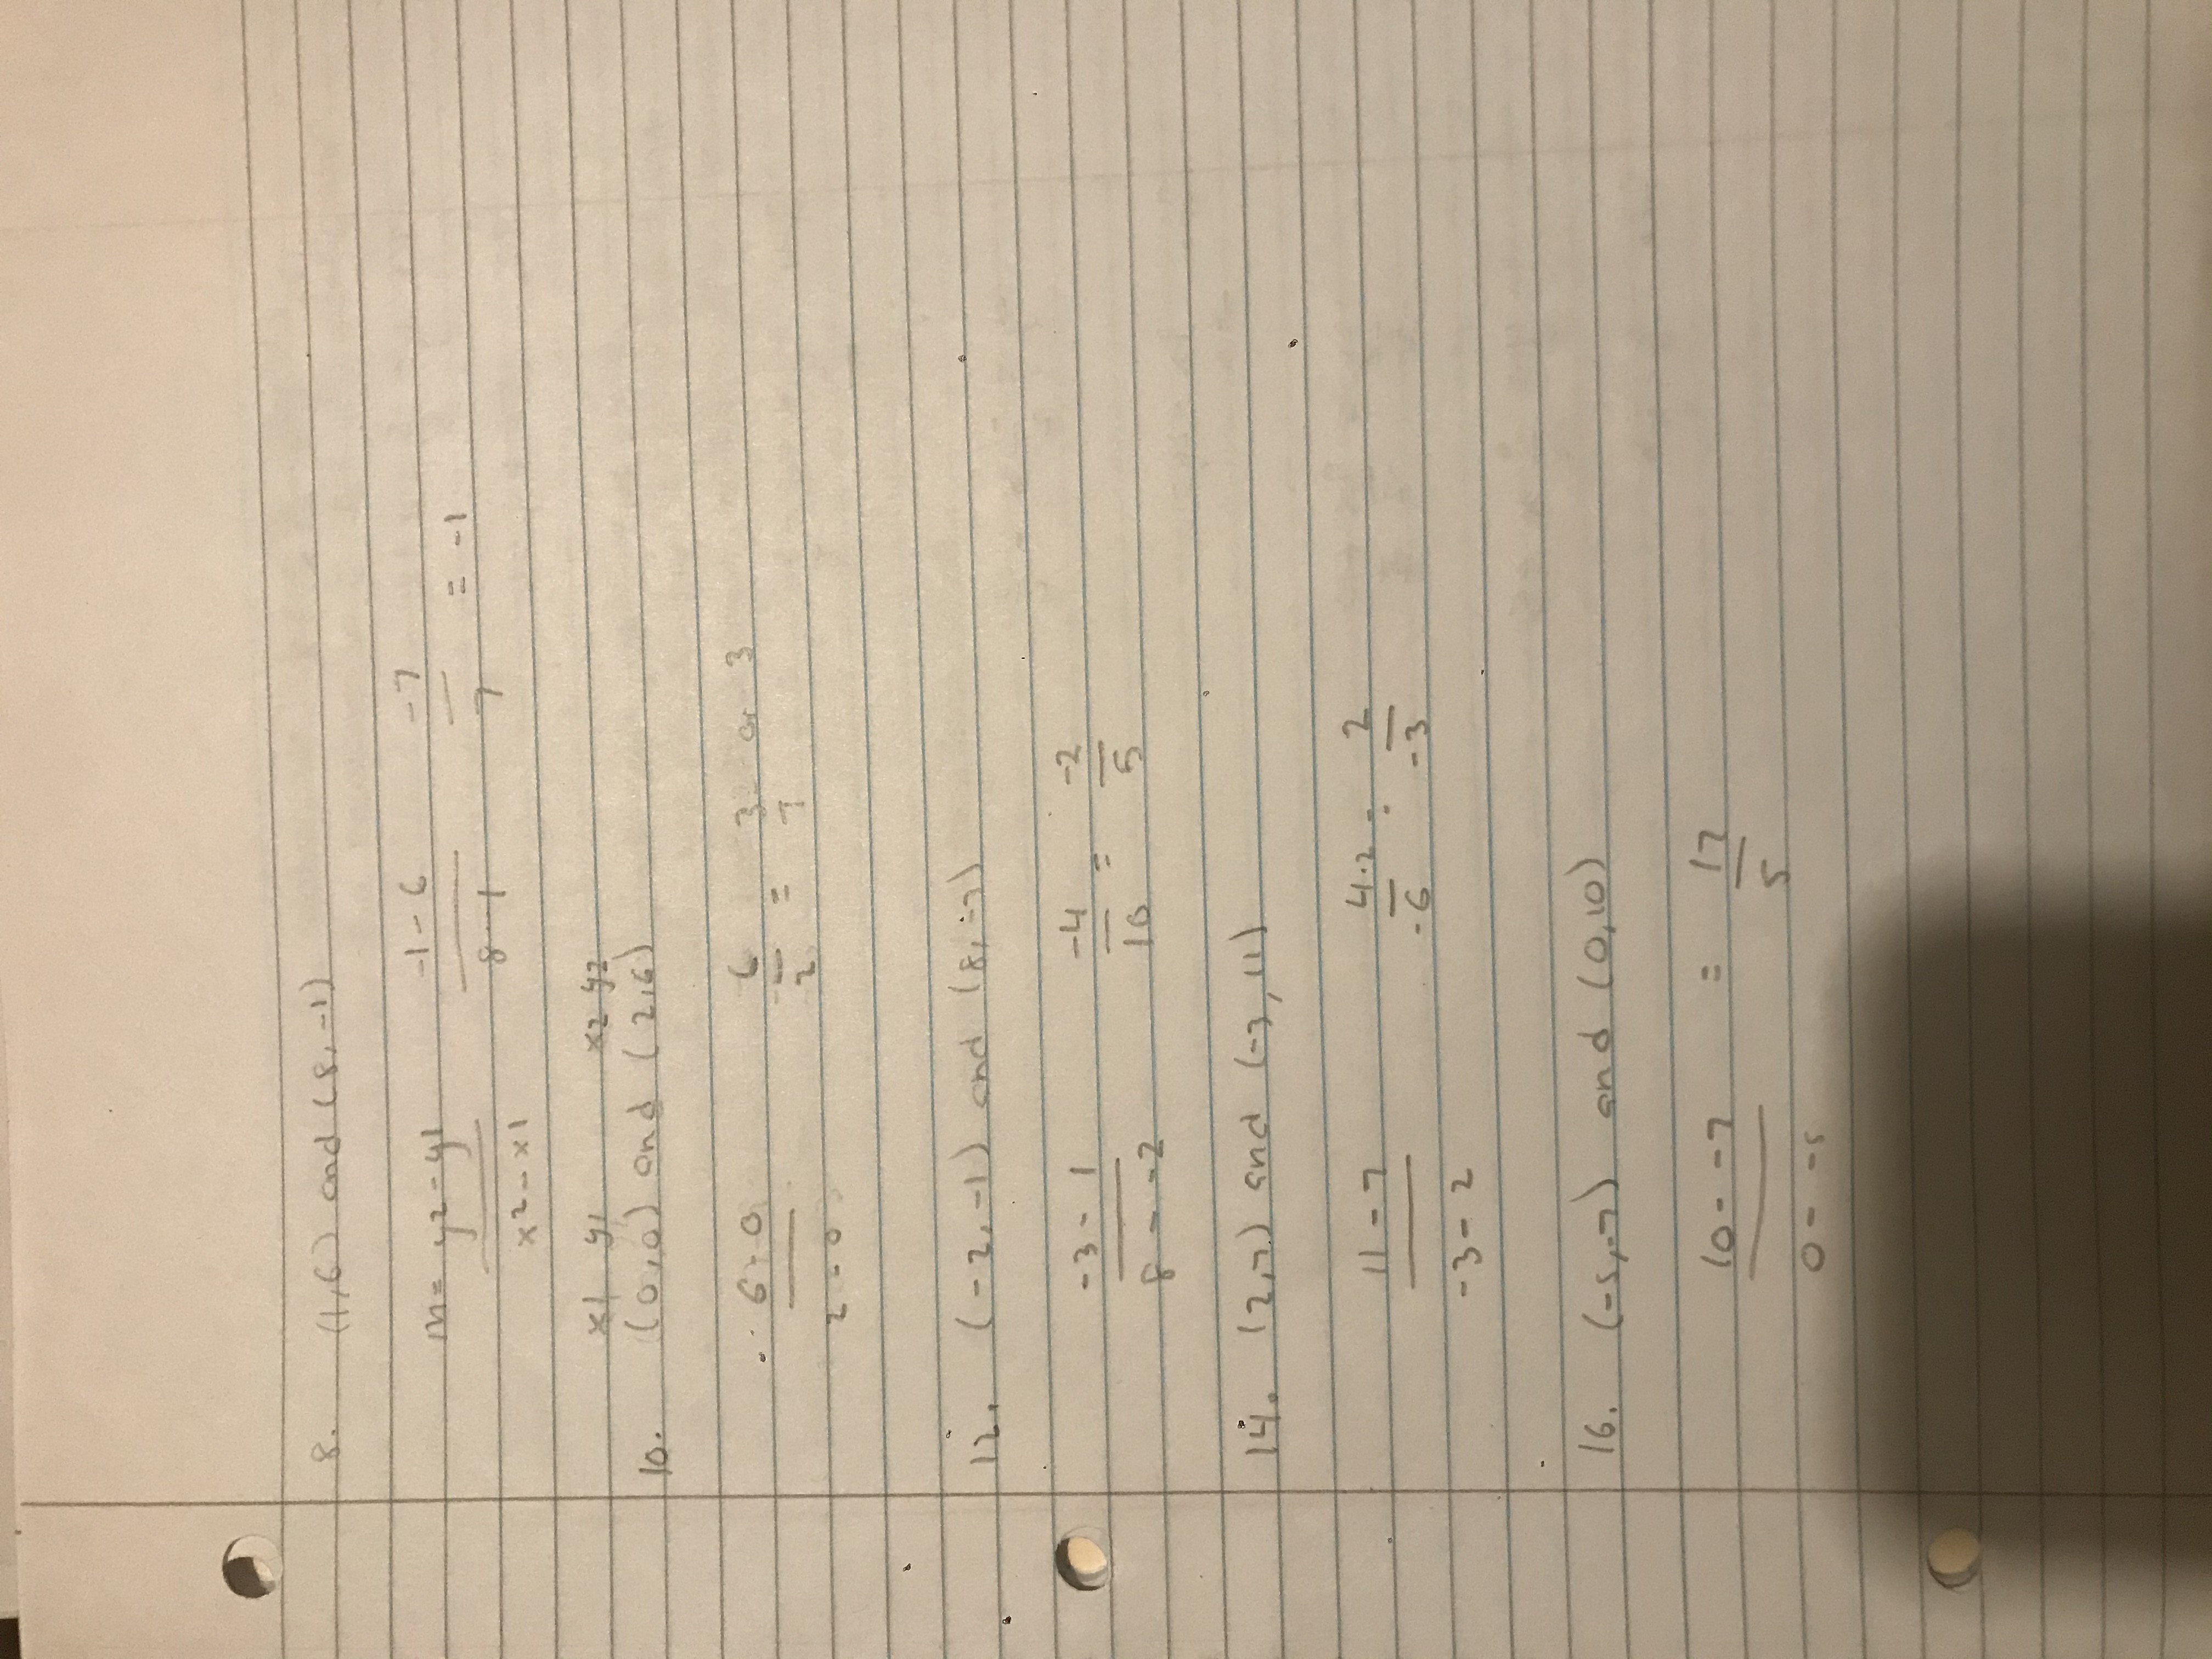 8. (1,6) and (8,-1)
m= y2-y1 -1-6 -7
= -1
x2-x1 8-1 7
x1 y1 x2 y2
10. (0,0) and (2,6)
6-0 6 3 or 3
=
2-0 2 1
12. (-2,-1) and (8,-3)
-3-1 -4 -2
=
8--2 10 5
14. (2,7) and (-3,11)
11-7 4÷2 2
-3-2 -6 -3
16. (-5,-7) and (0,10)
10--7 = 17
0--5 5